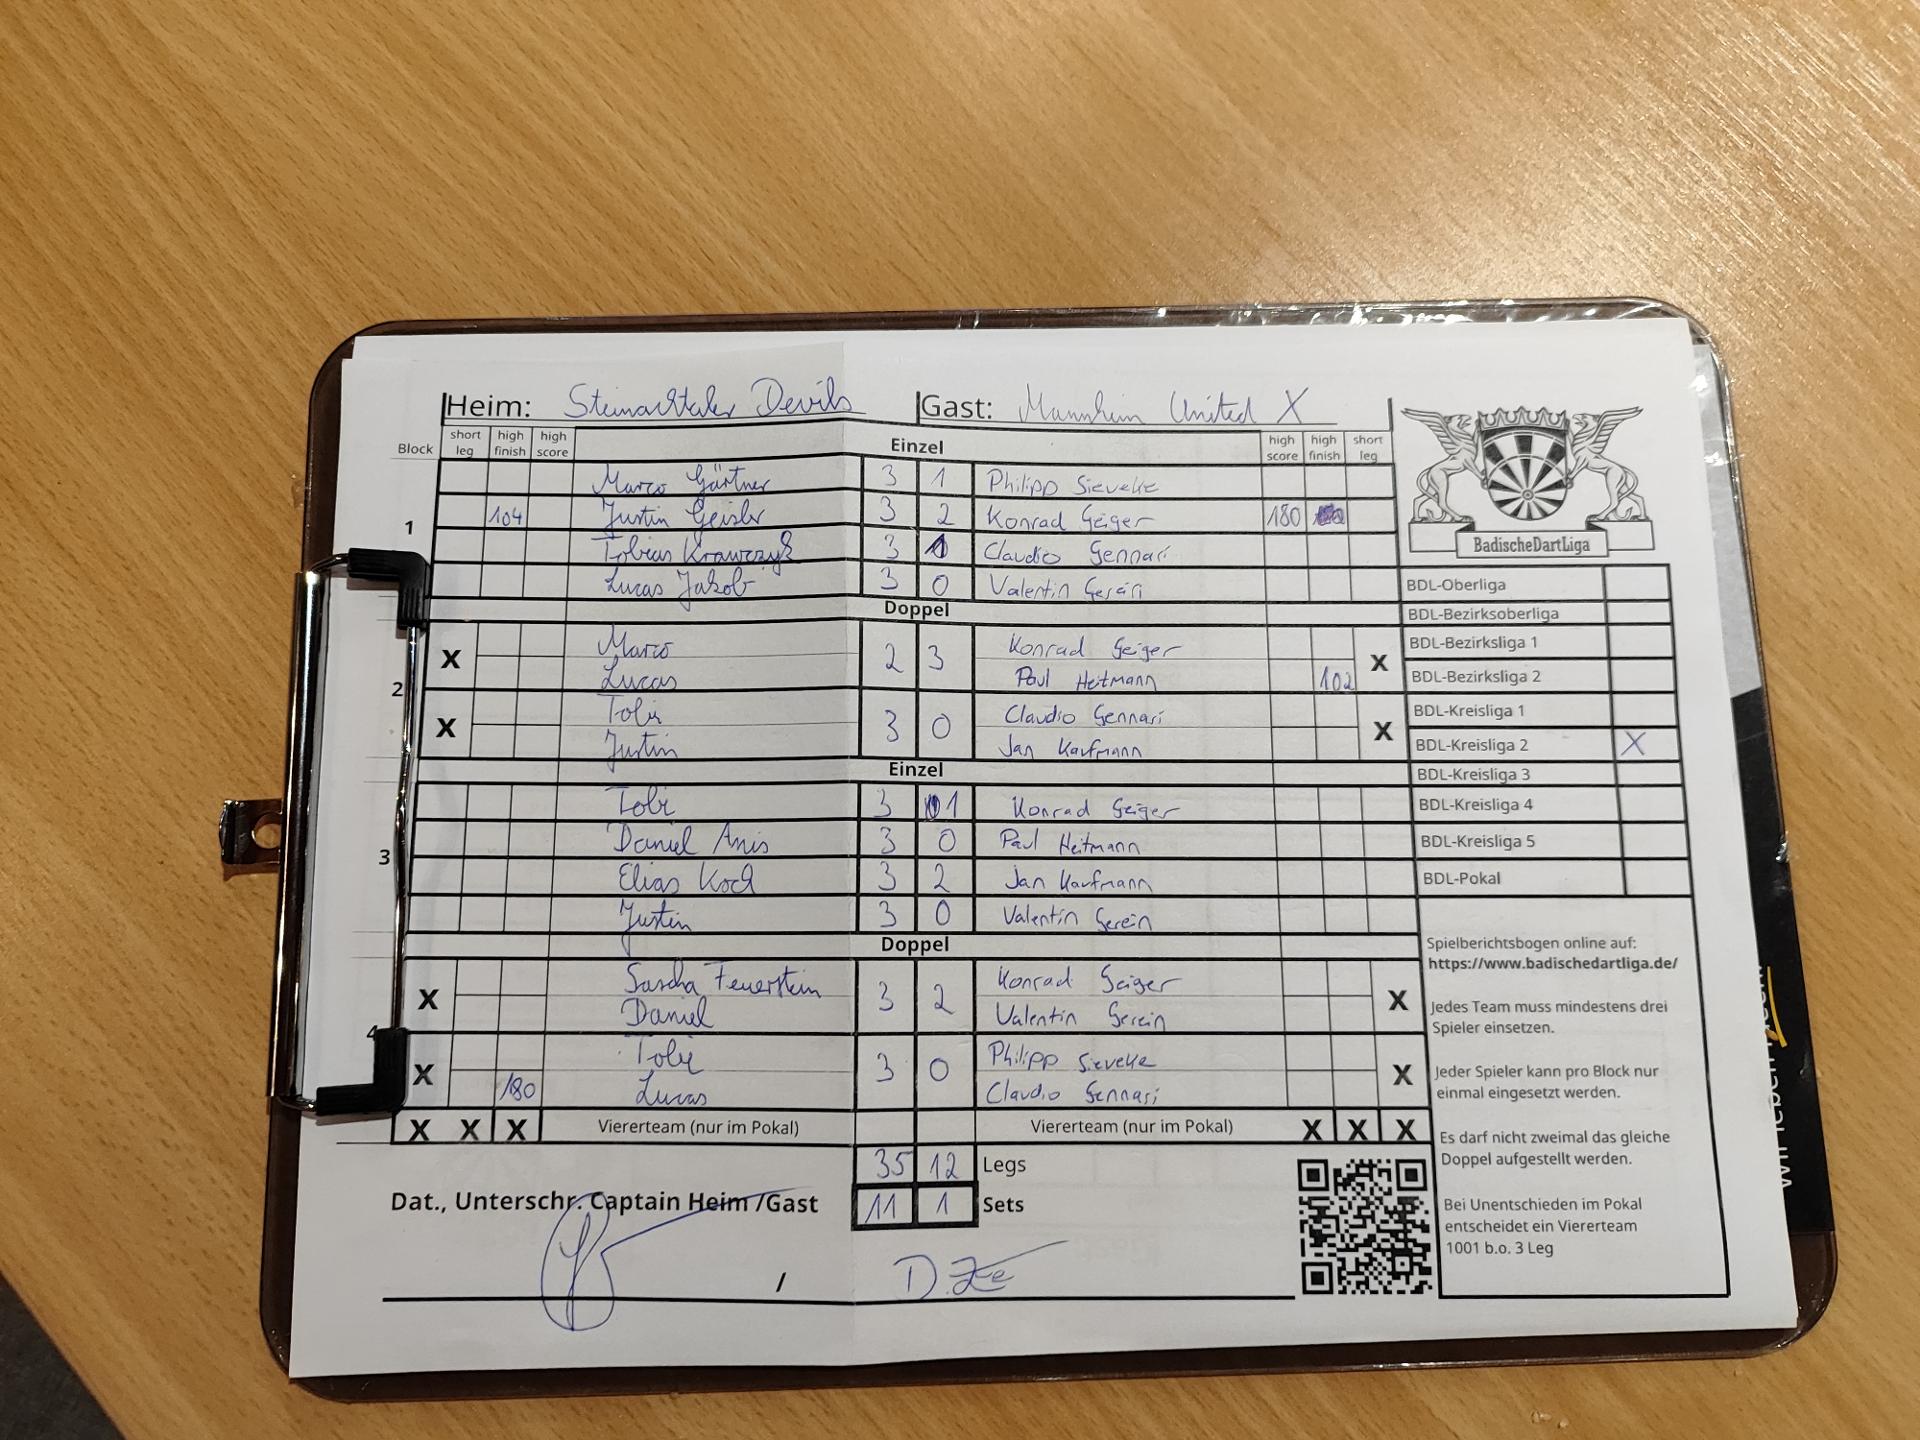 Heim: Steinachtaler Devils Gast: Mannheim United X
Block short leg high finish high score Einzel high score high finish short leg
Marco Gärtner 3 1 Philipp Sieveke
1 104 Justin Geisler 3 2 Konrad Geiger 180
Tobias Krawczyk 3 1 Claudio Gennari
Lucas Jakob 3 0 Valentin
Doppel
X Marco 2 3 Konrad Geiger X
2 Lucas Paul Heitmann 102
X Tobi 3 0 Claudio Gennari X
Justin Jan Kaufmann
Einzel
Tobi 3 1 Konrad Geiger
3 Daniel Anis 3 0 Paul Heitmann
Elias Koch 3 2 Jan Kaufmann
Justin 3 0 Valentin Gerein
Doppel
X Sascha Feuerstein 3 2 Konrad Geiger X
4 Daniel Valentin Gerein
X Tobi 3 0 Philipp Sieveke X
180 Lucas Claudio Gennari
X X X Viererteam (nur im Pokal) Viererteam (nur im Pokal) X X X
35 12 Legs
Dat., Unterschr. Captain Heim /Gast 11 1 Sets
/
BadischeDartLiga
BDL-Oberliga
BDL-Bezirksoberliga
BDL-Bezirksliga 1
BDL-Bezirksliga 2
BDL-Kreisliga 1
BDL-Kreisliga 2 X
BDL-Kreisliga 3
BDL-Kreisliga 4
BDL-Kreisliga 5
BDL-Pokal
Spielberichtsbogen online auf:
https://www.badischedartliga.de/
Jedes Team muss mindestens drei
Spieler einsetzen.
Jeder Spieler kann pro Block nur
einmal eingesetzt werden.
Es darf nicht zweimal das gleiche
Doppel aufgestellt werden.
Bei Unentschieden im Pokal
entscheidet ein Viererteam
1001 b.o. 3 Leg